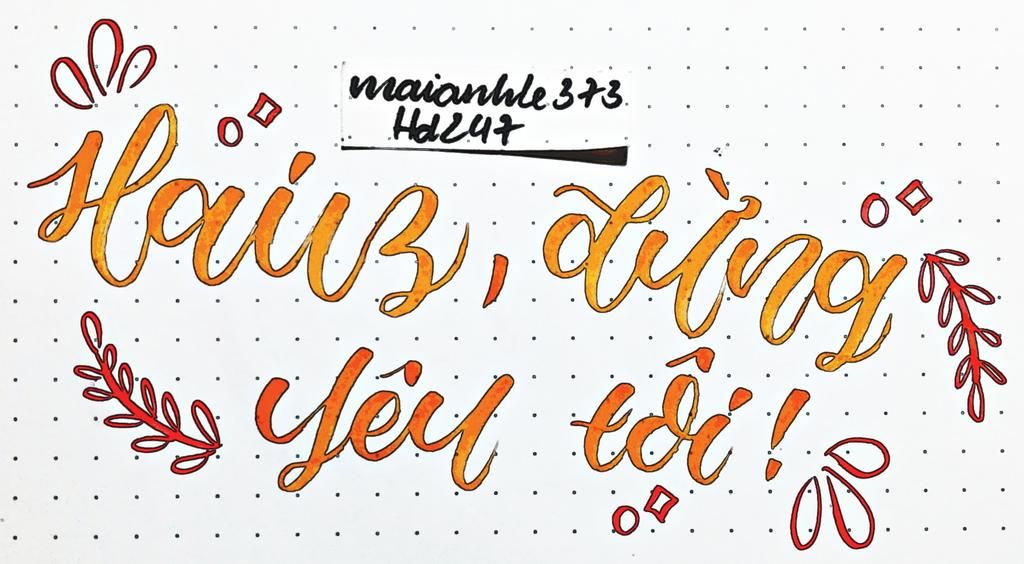 maianhle373
Hd247
Haizz, đừng
yêu tôi!